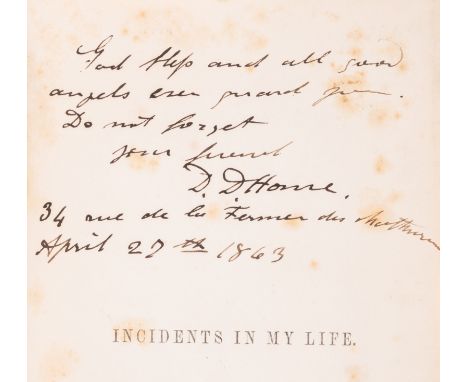 God bless and all good
angels ever guard you.
Do not forget
your friend
D. D Home.
34 rue de la Fermes des Mathurins
April 27th 1863
INCIDENTS IN MY LIFE.